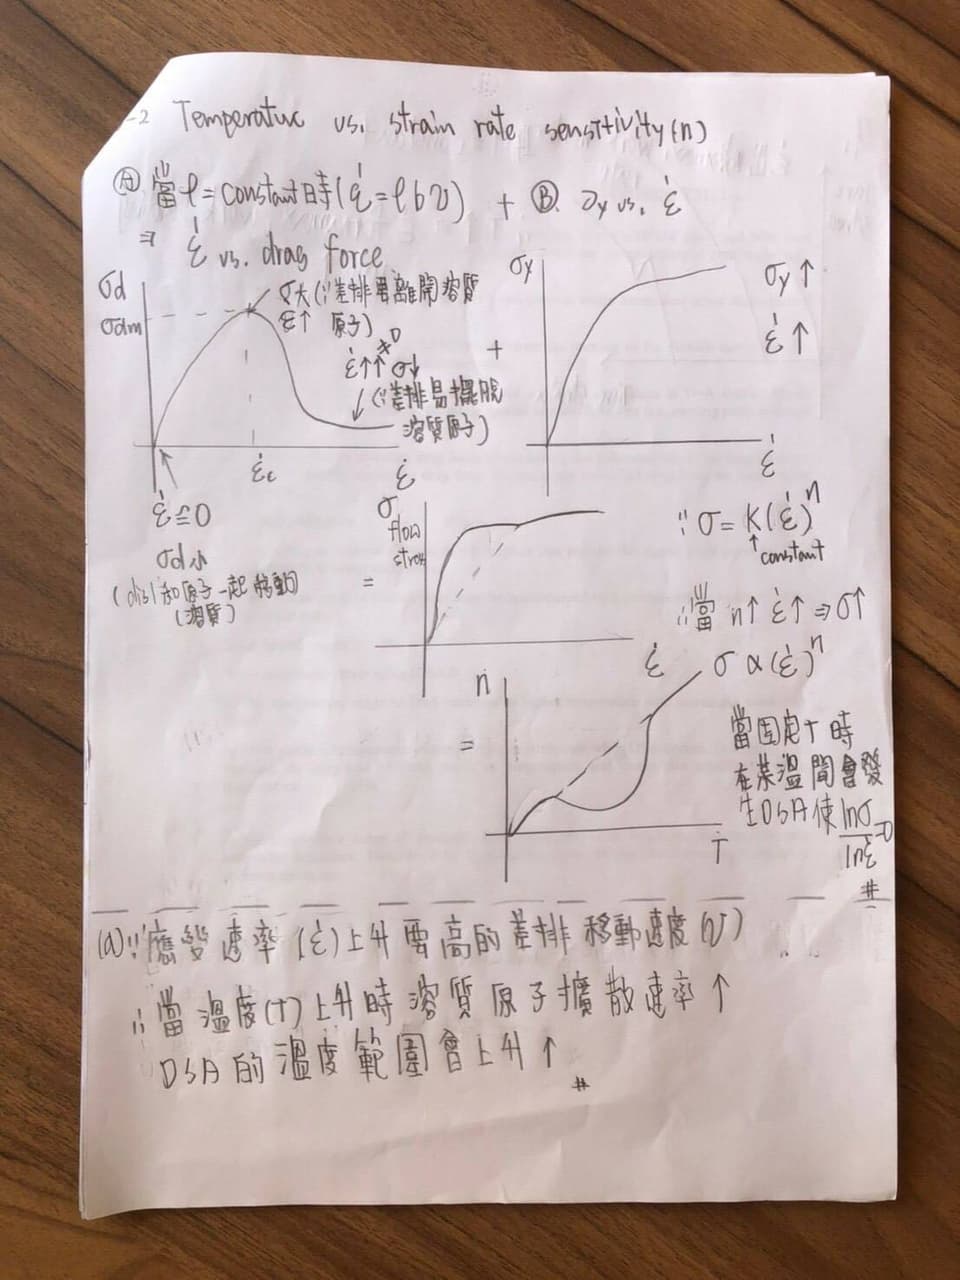 -2 Temperature vs. strain rate sensitivity(n)
Ⓐ 當ρ=constant時(ε̇=ρbv) + Ⓑ. σy vs. ε̇
⇒ ε̇ vs. drag force
σd
σdm
σ大(∵差排要離開溶質
ε↑ 原子)
ε̇↑↑ σ↓
(∵差排易擺脫
溶質原子)
ε̇c
ε̇
ε̇≅0
σd小
(disl和原子一起移動)
(溶質)
+
σy
σy↑
ε̇↑
ε̇
=
σ
flow
stress
ε̇
∵ σ= K(ε̇)ⁿ
↑constant
∴當 n↑ ε̇↑ ⇒σ↑
σ α(ε̇)ⁿ
=
n
T
當固定T時
在某溫間會發
生DSA使 lnσ/lnε̇=0
#
(a)∵應變速率(ε̇)上升要高的差排移動速度(v)
∴當溫度(T)上升時溶質原子擴散速率↑
DSA的溫度範圍會上升↑
#